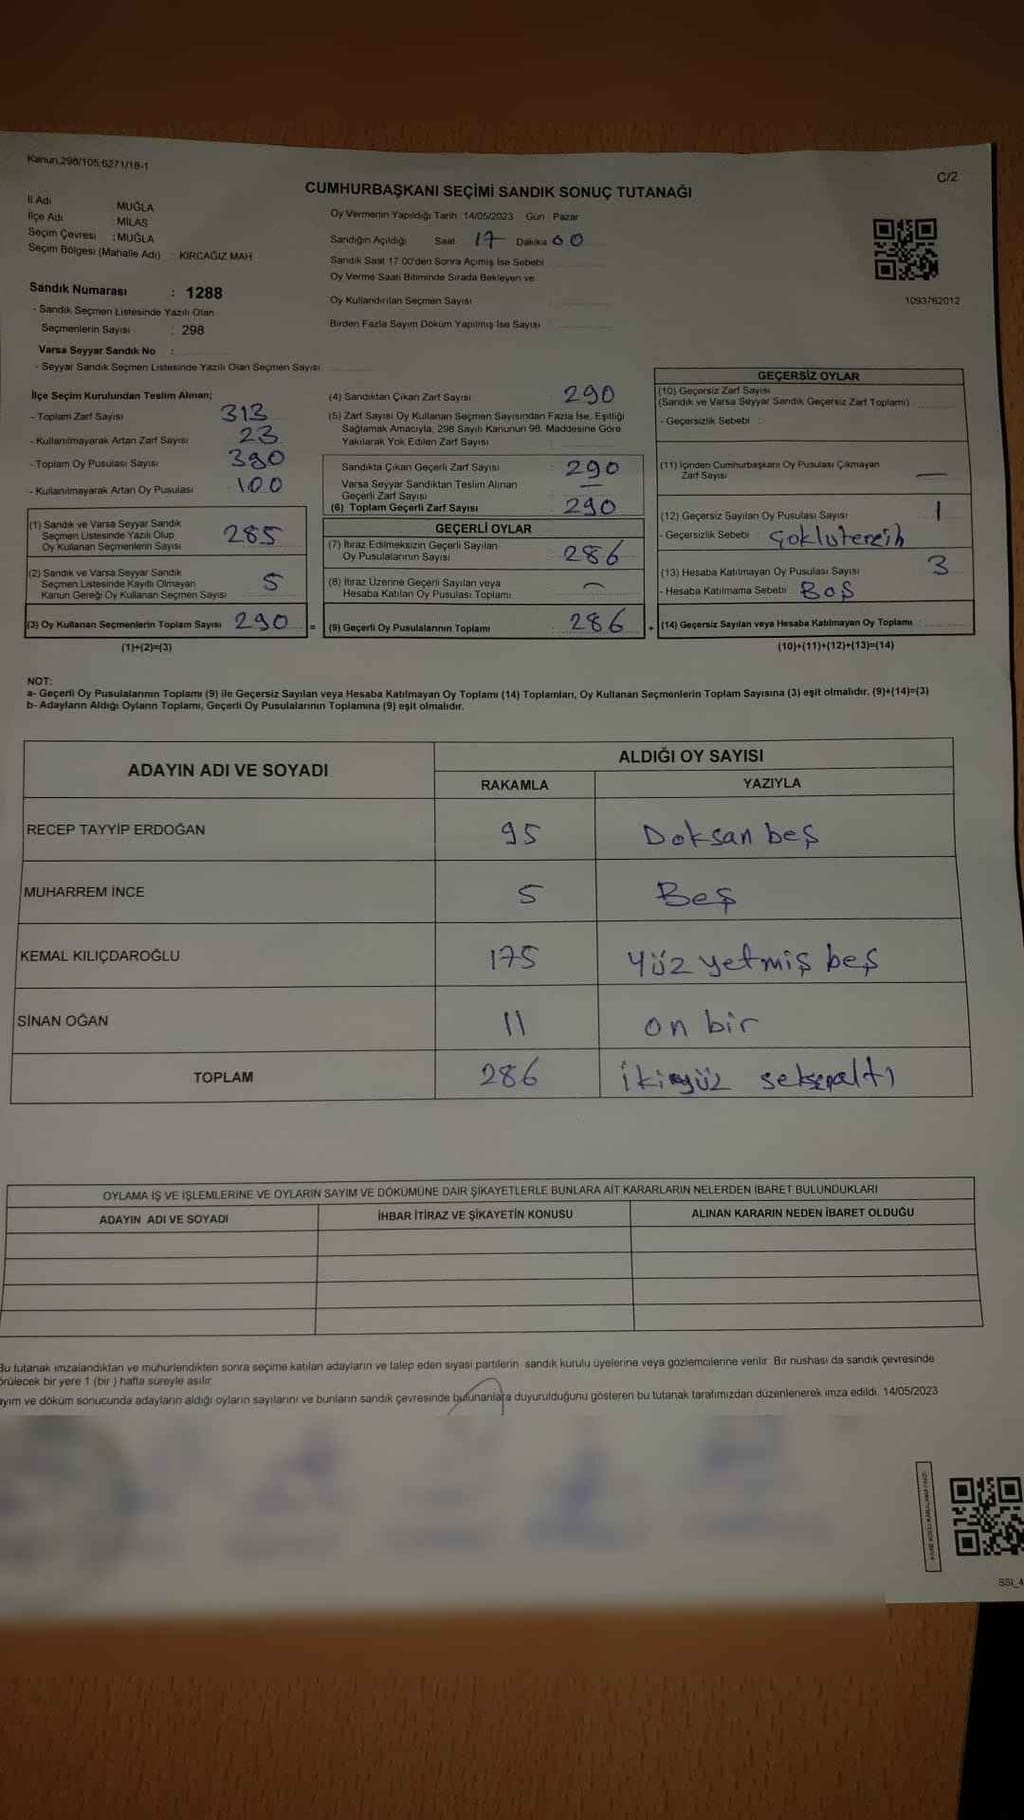 Kanun.298/105:6271/18-1
C/2
CUMHURBAŞKANI SEÇİMİ SANDIK SONUÇ TUTANAĞI
İl Adı MUĞLA
İlçe Adı MİLAS
Seçim Çevresi :MUĞLA
Seçim Bölgesi (Mahalle Adı) : KIRCAĞIZ MAH
Sandık Numarası : 1288
- Sandık Seçmen Listesinde Yazılı Olan
Seçmenlerin Sayısı : 298
Varsa Seyyar Sandık No :
- Seyyar Sandık Seçmen Listesinde Yazılı Olan Seçmen Sayısı
Oy Vermenin Yapıldığı Tarih 14/05/2023 Gün Pazar
Sandığın Açıldığı Saat 17 Dakika 00
Sandık Saat 17:00'den Sonra Açılmış İse Sebebi
Oy Verme Saati Bitiminde Sırada Bekleyen ve
Oy Kullandırılan Seçmen Sayısı
Birden Fazla Sayım Döküm Yapılmış İse Sayısı
1093762012
İlçe Seçim Kurulundan Teslim Alınan;
- Toplam Zarf Sayısı 313
- Kullanılmayarak Artan Zarf Sayısı 23
- Toplam Oy Pusulası Sayısı 390
- Kullanılmayarak Artan Oy Pusulası 100
(1) Sandık ve Varsa Seyyar Sandık
Seçmen Listesinde Yazılı Olup
Oy Kullanan Seçmenlerin Sayısı 285
(2) Sandık ve Varsa Seyyar Sandık
Seçmen Listesinde Kayıtlı Olmayan
Kanun Gereği Oy Kullanan Seçmen Sayısı 5
(3) Oy Kullanan Seçmenlerin Toplam Sayısı 290
(1)+(2)=(3)
(4) Sandıktan Çıkan Zarf Sayısı 290
(5) Zarf Sayısı Oy Kullanan Seçmen Sayısından Fazla İse, Eşitliği
Sağlamak Amacıyla; 298 Sayılı Kanunun 98. Maddesine Göre
Yakılarak Yok Edilen Zarf Sayısı :
Sandıkta Çıkan Geçerli Zarf Sayısı : 290
Varsa Seyyar Sandıktan Teslim Alınan
Geçerli Zarf Sayısı : —
(6) Toplam Geçerli Zarf Sayısı : 290
GEÇERLİ OYLAR
(7) İtiraz Edilmeksizin Geçerli Sayılan
Oy Pusulalarının Sayısı : 286
(8) İtiraz Üzerine Geçerli Sayılan veya
Hesaba Katılan Oy Pusulası Toplamı : —
= (9) Geçerli Oy Pusulalarının Toplamı : 286 +
GEÇERSİZ OYLAR
(10) Geçersiz Zarf Sayısı
(Sandık ve Varsa Seyyar Sandık Geçersiz Zarf Toplamı)
- Geçersizlik Sebebi :
(11) İçinden Cumhurbaşkanı Oy Pusulası Çıkmayan
Zarf Sayısı —
(12) Geçersiz Sayılan Oy Pusulası Sayısı 1
- Geçersizlik Sebebi : Çoklutercih
(13) Hesaba Katılmayan Oy Pusulası Sayısı 3
- Hesaba Katılmama Sebebi : Boş
(14) Geçersiz Sayılan veya Hesaba Katılmayan Oy Toplamı :
(10)+(11)+(12)+(13)=(14)
NOT:
a- Geçerli Oy Pusulalarının Toplamı (9) ile Geçersiz Sayılan veya Hesaba Katılmayan Oy Toplamı (14) Toplamları, Oy Kullanan Seçmenlerin Toplam Sayısına (3) eşit olmalıdır. (9)+(14)=(3)
b- Adayların Aldığı Oyların Toplamı, Geçerli Oy Pusulalarının Toplamına (9) eşit olmalıdır.
ADAYIN ADI VE SOYADI
ALDIĞI OY SAYISI
RAKAMLA YAZIYLA
RECEP TAYYİP ERDOĞAN 95 Doksan beş
MUHARREM İNCE 5 Beş
KEMAL KILIÇDAROĞLU 175 Yüz yetmiş beş
SİNAN OĞAN 11 on bir
TOPLAM 286 ikiyüz seksenaltı
OYLAMA İŞ VE İŞLEMLERİNE VE OYLARIN SAYIM VE DÖKÜMÜNE DAİR ŞİKAYETLERLE BUNLARA AİT KARARLARIN NELERDEN İBARET BULUNDUKLARI
ADAYIN ADI VE SOYADI İHBAR İTİRAZ VE ŞİKAYETİN KONUSU ALINAN KARARIN NEDEN İBARET OLDUĞU
Bu tutanak imzalandıktan ve mühürlendikten sonra seçime katılan adayların ve talep eden siyasi partilerin sandık kurulu üyelerine veya gözlemcilerine verilir. Bir nüshası da sandık çevresinde
örülecek bir yere 1 (bir ) hafta süreyle asılır.
ayım ve döküm sonucunda adayların aldığı oyların sayılarını ve bunların sandık çevresinde bulunanlara duyurulduğunu gösteren bu tutanak tarafımızdan düzenlenerek imza edildi. 14/05/2023
SSI_4